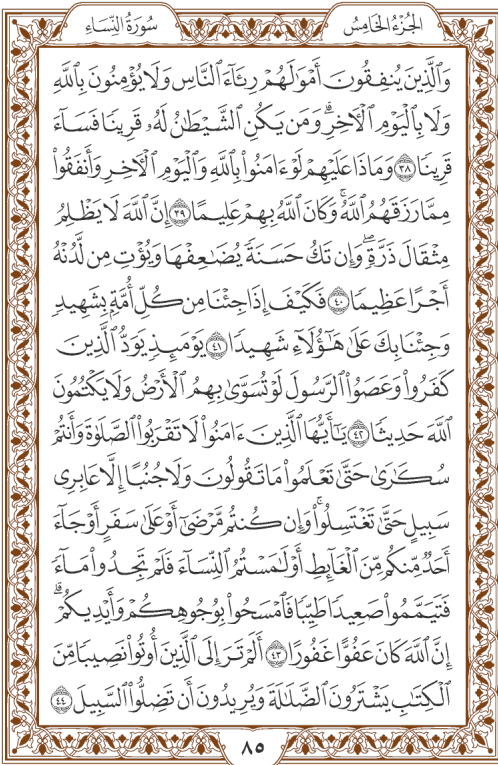 الجُزْءُ الخَامِسُ سُورَةُ النِّسَاءِ
وَٱلَّذِينَ يُنفِقُونَ أَمْوَٰلَهُمْ رِئَآءَ ٱلنَّاسِ وَلَا يُؤْمِنُونَ بِٱللَّهِ
وَلَا بِٱلْيَوْمِ ٱلْأٓخِرِۗ وَمَن يَكُنِ ٱلشَّيْطَٰنُ لَهُۥ قَرِينٗا فَسَآءَ
قَرِينٗا ٣٨ وَمَاذَا عَلَيْهِمْ لَوْ ءَامَنُوا۟ بِٱللَّهِ وَٱلْيَوْمِ ٱلْأٓخِرِ وَأَنفَقُوا۟
مِمَّا رَزَقَهُمُ ٱللَّهُۚ وَكَانَ ٱللَّهُ بِهِمْ عَلِيمًا ٣٩ إِنَّ ٱللَّهَ لَا يَظْلِمُ
مِثْقَالَ ذَرَّةٖۖ وَإِن تَكُ حَسَنَةٗ يُضَٰعِفْهَا وَيُؤْتِ مِن لَّدُنْهُ
أَجْرًا عَظِيمٗا ٤٠ فَكَيْفَ إِذَا جِئْنَا مِن كُلِّ أُمَّةِۭ بِشَهِيدٖ
وَجِئْنَا بِكَ عَلَىٰ هَٰٓؤُلَآءِ شَهِيدٗا ٤١ يَوْمَئِذٖ يَوَدُّ ٱلَّذِينَ
كَفَرُوا۟ وَعَصَوُا۟ ٱلرَّسُولَ لَوْ تُسَوَّىٰ بِهِمُ ٱلْأَرْضُ وَلَا يَكْتُمُونَ
ٱللَّهَ حَدِيثٗا ٤٢ يَٰٓأَيُّهَا ٱلَّذِينَ ءَامَنُوا۟ لَا تَقْرَبُوا۟ ٱلصَّلَوٰةَ وَأَنتُمْ
سُكَٰرَىٰ حَتَّىٰ تَعْلَمُوا۟ مَا تَقُولُونَ وَلَا جُنُبًا إِلَّا عَابِرِى
سَبِيلٍ حَتَّىٰ تَغْتَسِلُوا۟ۚ وَإِن كُنتُم مَّرْضَىٰٓ أَوْ عَلَىٰ سَفَرٍ أَوْ جَآءَ
أَحَدٞ مِّنكُم مِّنَ ٱلْغَآئِطِ أَوْ لَٰمَسْتُمُ ٱلنِّسَآءَ فَلَمْ تَجِدُوا۟ مَآءٗ
فَتَيَمَّمُوا۟ صَعِيدٗا طَيِّبٗا فَٱمْسَحُوا۟ بِوُجُوهِكُمْ وَأَيْدِيكُمْۗ
إِنَّ ٱللَّهَ كَانَ عَفُوًّا غَفُورًا ٤٣ أَلَمْ تَرَ إِلَى ٱلَّذِينَ أُوتُوا۟ نَصِيبٗا مِّنَ
ٱلْكِتَٰبِ يَشْتَرُونَ ٱلضَّلَٰلَةَ وَيُرِيدُونَ أَن تَضِلُّوا۟ ٱلسَّبِيلَ ٤٤
٨٥